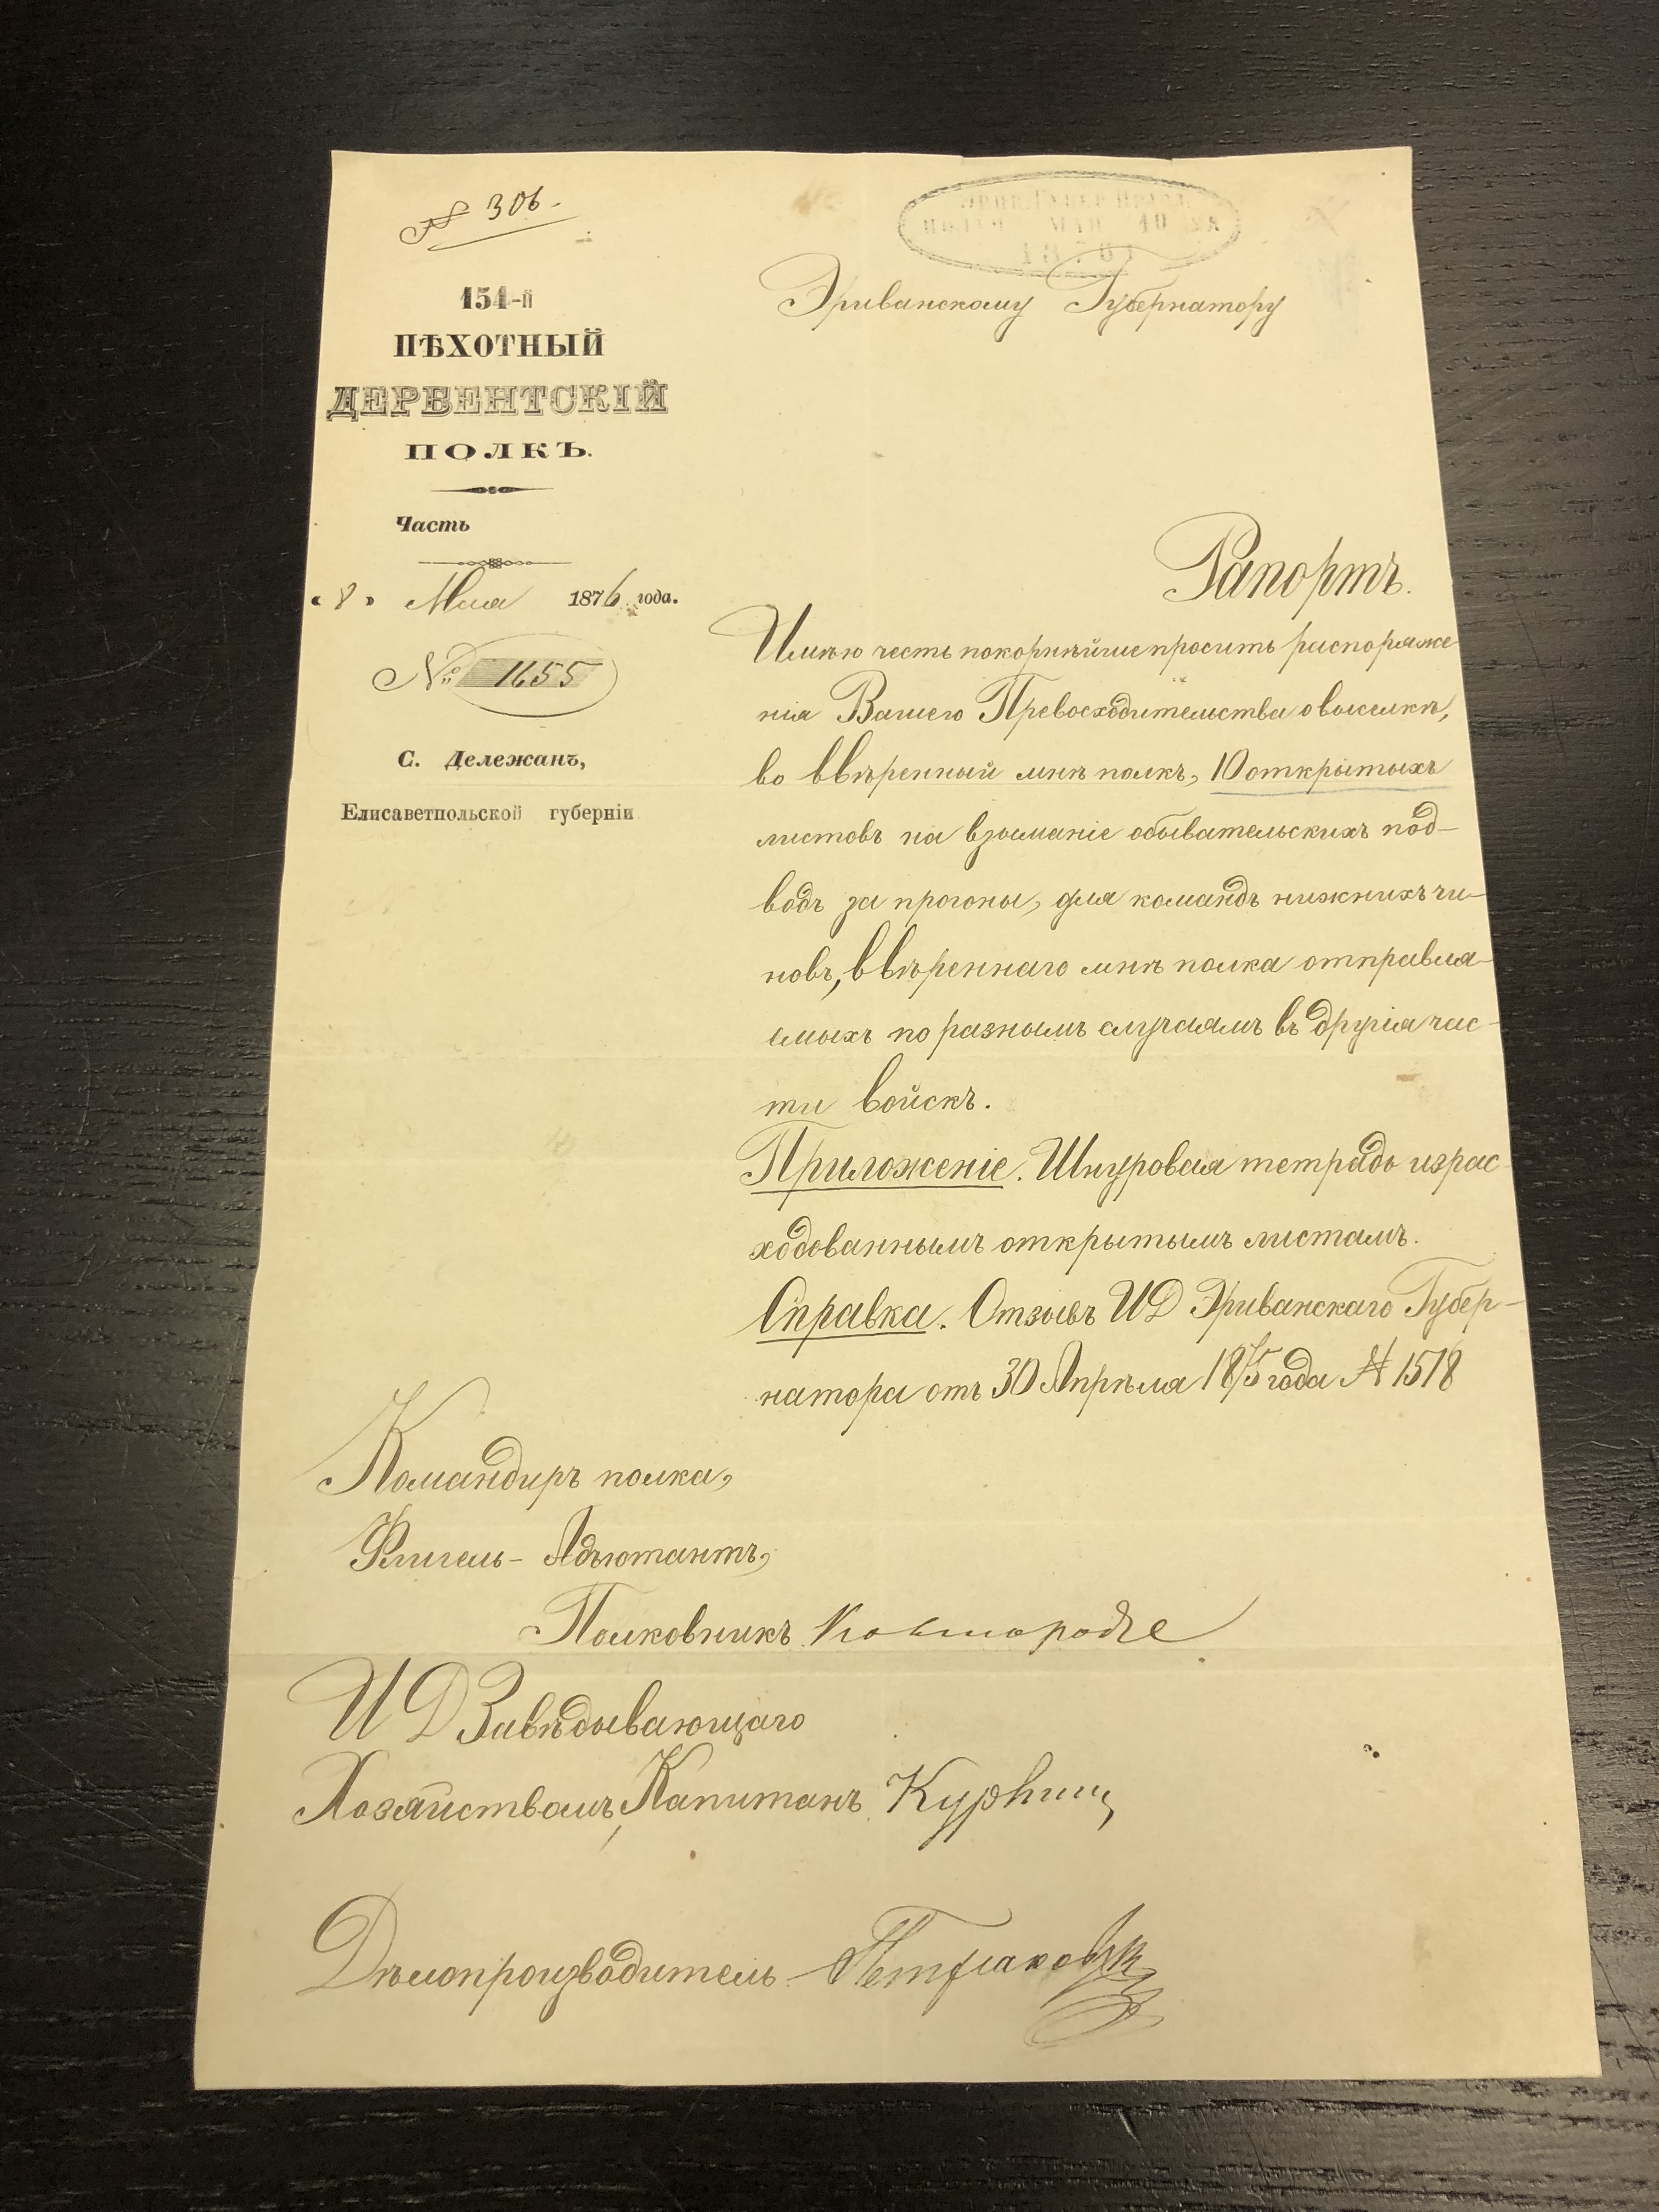 № 306.
151-й
ПѢХОТНЫЙ
ДЕРБЕНТСКІЙ
ПОЛКЪ.
Часть
« 8 » Мая 1876 года.
№ 1655
С. Дележанъ,
Елисаветпольской губерніи
МАЯ 10
Эриванскому Губернатору
Рапортъ.
Имѣю честь покорнѣйше просить распоряже
нія Вашего Превосходительства о высылкѣ,
во ввѣренный мнѣ полкъ, 10 открытыхъ
листовъ на взыманіе обывательскихъ под-
водъ за прогоны, для командъ нижнихъ чи-
новъ, ввѣреннаго мнѣ полка отправля-
емыхъ по разнымъ случаямъ въ другія час-
ти войскъ.
Приложеніе. Шнуровая тетрадь израс-
ходованнымъ открытымъ листамъ.
Справка. Отзывъ ИД Эриванскаго Губер-
натора отъ 30 Апрѣля 1875 года № 1518
Командиръ полка,
Флигель-Адъютантъ,
Полковникъ
И Д Завѣдывающаго
Хозяйствомъ, Капитанъ
Дѣлопроизводитель